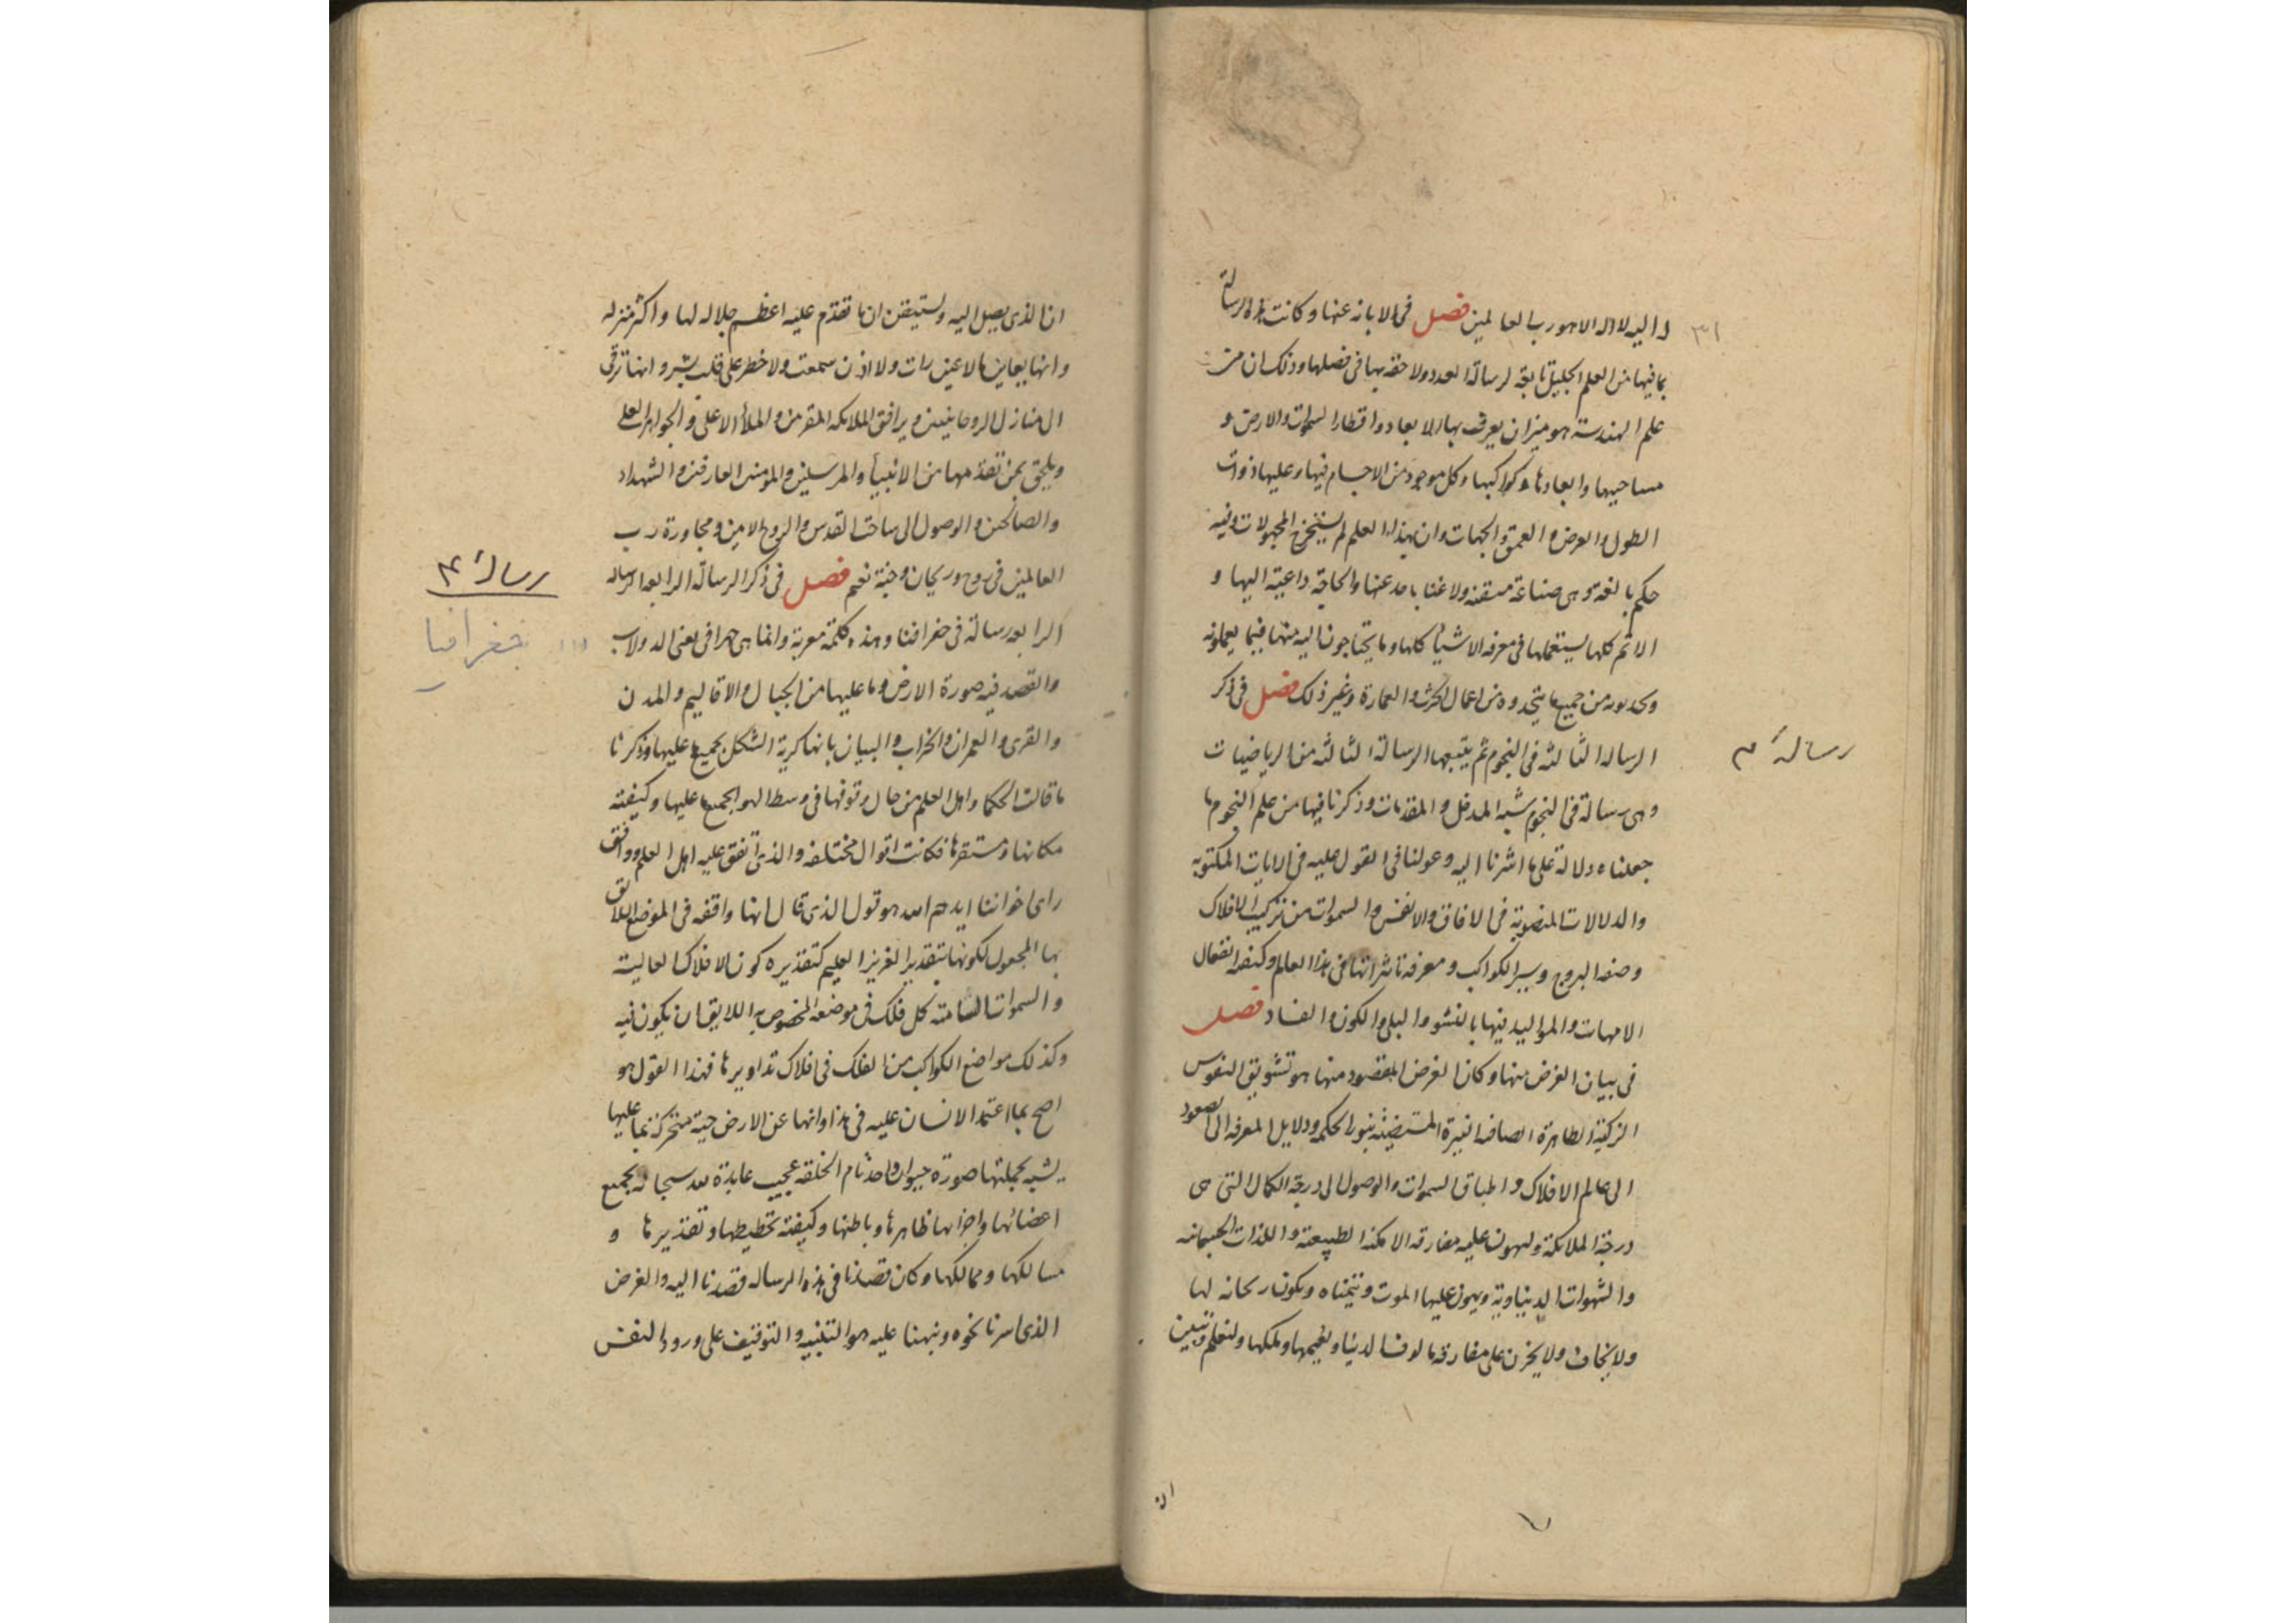 ٣١
لا اله الا هو رب العالمين فصل فى الابانه عنها وكانت هذه الرسالة
بما فيها من العلم الجليل تابعة لرسالة العدد ولاحقه بها فى فضلها وذلك ان من
علم الهندسة هو ميزان يعرف بها الابعاد واقطار السموات والارض و
مساحيها وابعادها وكواكبها وكل موجود من الاجسام فيها وعليها ذوات
الطول والعرض والعمق والجهات وان بهذا العلم لم يستخرج المجهولات وفيه
حكم بالغة وهى صناعة متقنه ولا غنا باحد عنها والحاجة داعية اليها و
الامم كلها يستعملها فى معرفه الاشياء كلها وما يحتاجون اليه منها فيما يعملونه
من جميع ما يتخذوه من اعمال الحرث والعمارة وغير ذلك فصل فى ذكر
رسالهٔ ٣
الرساله الثالثه فى النجوم ثم يتبعها الرسالة الثالثه من الرياضيات
وهى رسالة فى النجوم شبه المدخل والمقدمات وذكرنا فيها من علم النجوم ما
جعلناه دلالة على ما اشرنا اليه وعولنا فى القول عليه فى الايات المكتوبة
والدلالات المنصوبة فى الافاق والانفس والسموات من تركيب الافلاك
وصفه البروج وسير الكواكب ومعرفه تاثيراتها فى هذا العالم وكيفيه انفعال
الامهات والمواليد فيها بالنشو والبلى والكون والفساد فصل
فى بيان الغرض منها وكان الغرض المقصود منها هو تشويق النفوس
الزكية الطاهرة الصافيه النيرة المستضيئة بنور الحكمه ودلايل المعرفه الى الصعود
الى عالم الافلاك واطباق السموات والوصول الى درجة الكمال التى هى
درجة الملائكة وليهون عليه مفارقه الامكنه الطبيعيه واللذات الجسمانيه
والشهوات الدنياوية ويهون عليها الموت وتتمناه ويكون ريحانه لها
ولا يخاف ولا يحزن على مفارقه مالوف الدنيا ونعيمها وملكها ولتعلم وتتبين
ان
ان الذى يصل اليه وتستيقن ان ما تقدم عليه اعظم جلاله لها واكثر منزله
وانها يعاين ما لا عين رات ولا اذن سمعت ولا خطر على قلب بشر وانها ترقى
الى منازل الروحانيين ويرافق الملائكه المقربين والملأ الاعلى والجواهر العلى
ويلحق بمن تقدمها من الانبيأ والمرسلين والمومنين العارفين والشهداء
والصالحين والوصول الى ساحة القدس والروح الامين ومجاورة رب
العالمين فى روح وريحان وجنة نعيم فصل فى ذكر الرسالة الرابعه الرساله
رسالهٔ ۴
الرابعه رسالة فى جغرافيا وهذه كلمة معربة وانما هى جرافى يعنى الدولاب
جغرافيا
والقصد فيه صورة الارض وما عليها من الجبال والاقاليم والمدن
والقرى والعمران والخراب والبيان بانها كرية الشكل بجميع ما عليها وذكرنا
ما قالت الحكما واهل العلم من حال وقوفها فى وسط الهوا بجميع ما عليها وكيفيته
مكانها ومستقرها فكانت اقوال مختلفه والذى اتفق عليه اهل العلم ووافق
راى اخواننا ايدهم الله هو قول الذى قال انها واقفه فى الموضع اللائق
بها المجعول لكونها بتقدير العزيز العليم كتقديره كون الافلاك العالية
والسموات السامية كل فلك فى موضعه المخصوص به اللايق ان يكون فيه
وكذلك مواضع الكواكب من الفلك فى افلاك تداويرها فهذا القول هو
اصح ما اعتمد الانسان عليه فى هذا وانها عن الارض حية متحركة بما عليها
يشبه بجملتها صورة حيوان واحد تام الخلقه عجيب عابدة لله سبحانه بجميع
اعضائها واجزائها ظاهرها وباطنها وكيفية تخطيطها وتقديرها و
مسالكها وممالكها وكان قصدنا فى هذه الرساله قصدنا اليه والغرض
الذى اسرنا نحوه ونبهنا عليه هو التنبيه والتوقيف على ورود النفس